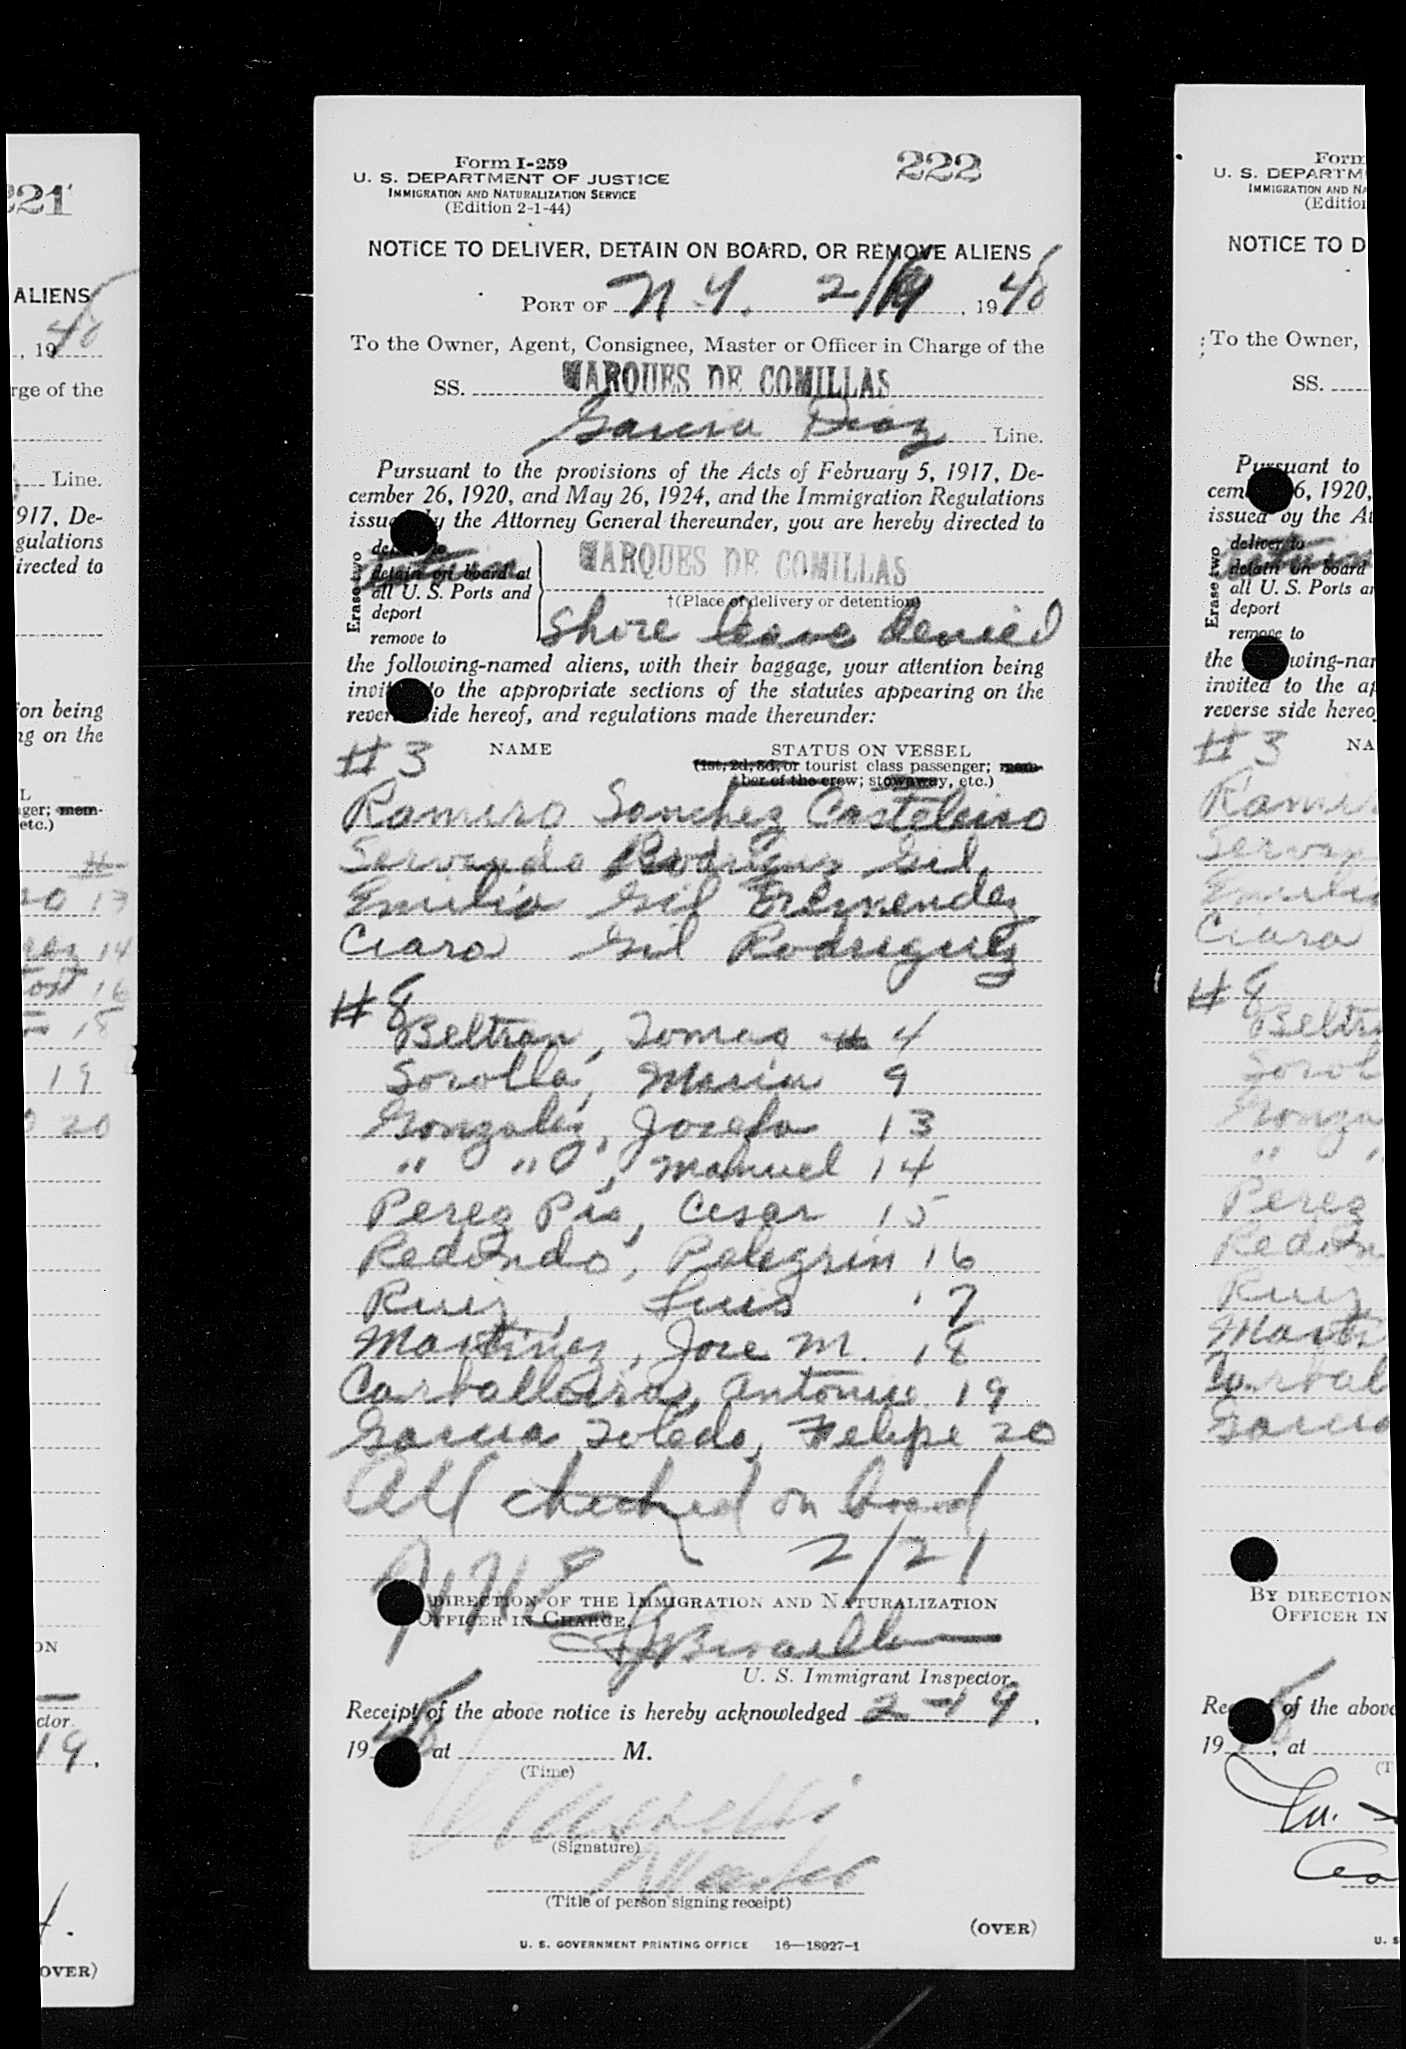 221
ALIENS
, 1948
rge of the
Line.
917, De-
gulations
irected to
on being
ng on the
L
ger; mem-
etc.)
#
so 13
rez 14
tost 16
18
19
o 20
ON
ctor.
19,
OVER)
Form I-259
222
U. S. DEPARTMENT OF JUSTICE
IMMIGRATION AND NATURALIZATION SERVICE
(Edition 2-1-44)
NOTICE TO DELIVER, DETAIN ON BOARD, OR REMOVE ALIENS
PORT OF N.Y. 2/19, 1948
To the Owner, Agent, Consignee, Master or Officer in Charge of the
SS. MARQUES DE COMILLAS
Garcia Diaz Line.
Pursuant to the provisions of the Acts of February 5, 1917, De-
cember 26, 1920, and May 26, 1924, and the Immigration Regulations
issued by the Attorney General thereunder, you are hereby directed to
Erase two
deliver to
detain on board at
all U. S. Ports and
deport
remove to
MARQUES DE COMILLAS
†(Place of delivery or detention)
Shore leave denied
the following-named aliens, with their baggage, your attention being
invited to the appropriate sections of the statutes appearing on the
reverse side hereof, and regulations made thereunder:
#3 NAME STATUS ON VESSEL
(1st, 2d, 3d, or tourist class passenger; mem-
ber of the crew; stowaway, etc.)
Ramiro Sanchez Casteleiro
Servando Rodriguez Gil
Emilio Gil Fernendez
Ciara Gil Rodriguez
#8
Beltran, Tomas 4
Sorolla, Maria 9
Gonzalez, Josefa 13
" " , Manuel 14
Perez Pis, Cesar 15
Redondo, Pelegrin 16
Ruiz, Luis 17
Martinez, Jose M. 18
Carballeira, Antonio 19
Garcia Toledo, Felipe 20
All checked on board
2/21
BY DIRECTION OF THE IMMIGRATION AND NATURALIZATION
OFFICER IN CHARGE,
U. S. Immigrant Inspector.
Receipt of the above notice is hereby acknowledged 2-19,
1948 at M.
(Time)
(Signature)
Master
(Title of person signing receipt)
(OVER)
U. S. GOVERNMENT PRINTING OFFICE 16—18927-1
Form
U. S. DEPARTM
IMMIGRATION AND NA
(Edition
NOTICE TO D
To the Owner,
SS.
Pursuant to
cember 26, 1920,
issued by the At
Erase two
deliver to
detain on board
all U. S. Ports an
deport
remove to
the following-nam
invited to the ap
reverse side hereof
#3 NA
Ramir
Servan
Emilio
Ciara
#8
Beltr
Sorol
Gonza
"
Perez
Redon
Ruiz
Marti
Carbal
Garcia
BY DIRECTION
OFFICER IN
Receipt of the above
1948, at
(T
U. S